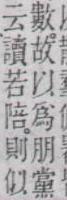 數。故以為朋黨
云讀若陪。則似